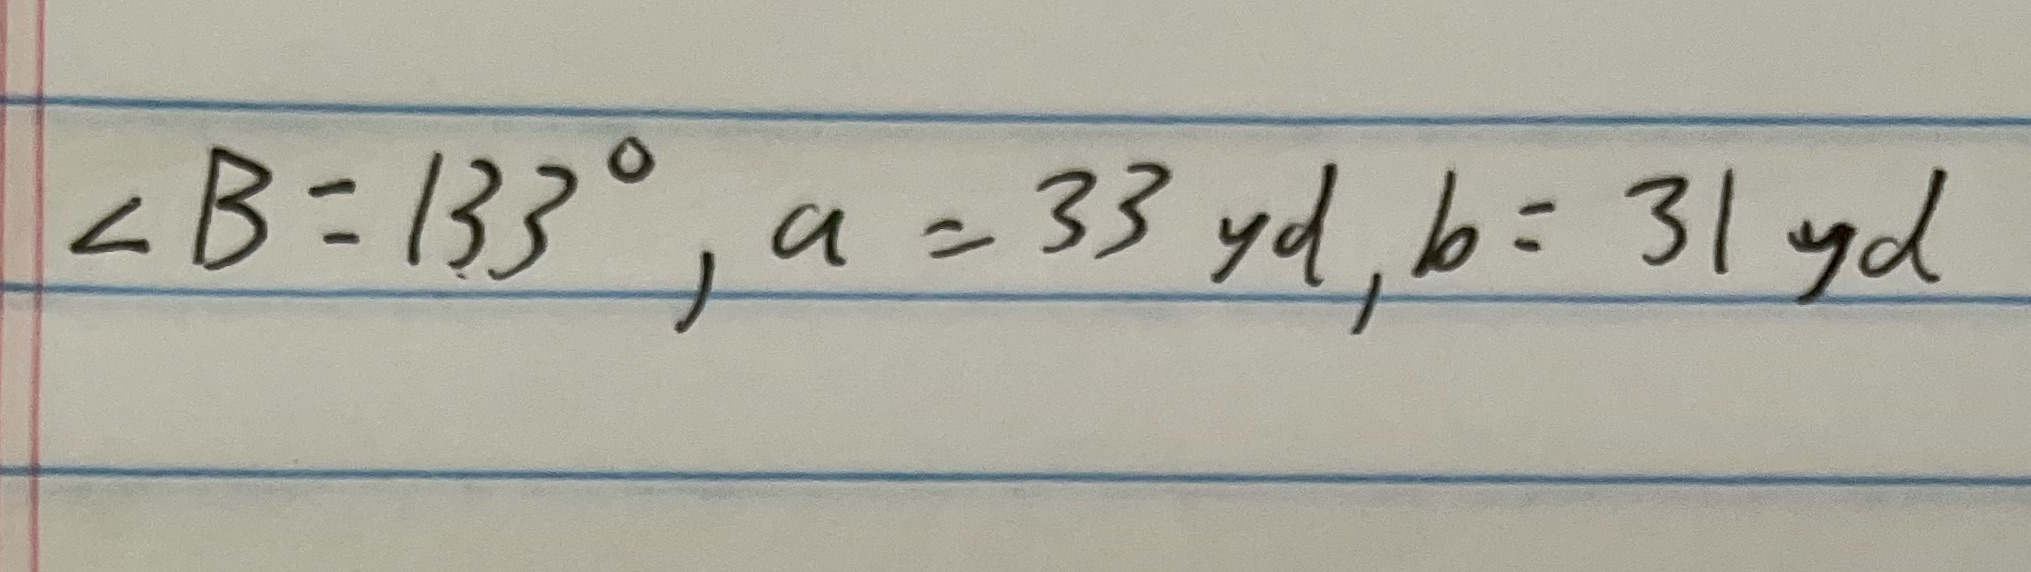 ∠B = 133°, a = 33 yd, b = 31 yd